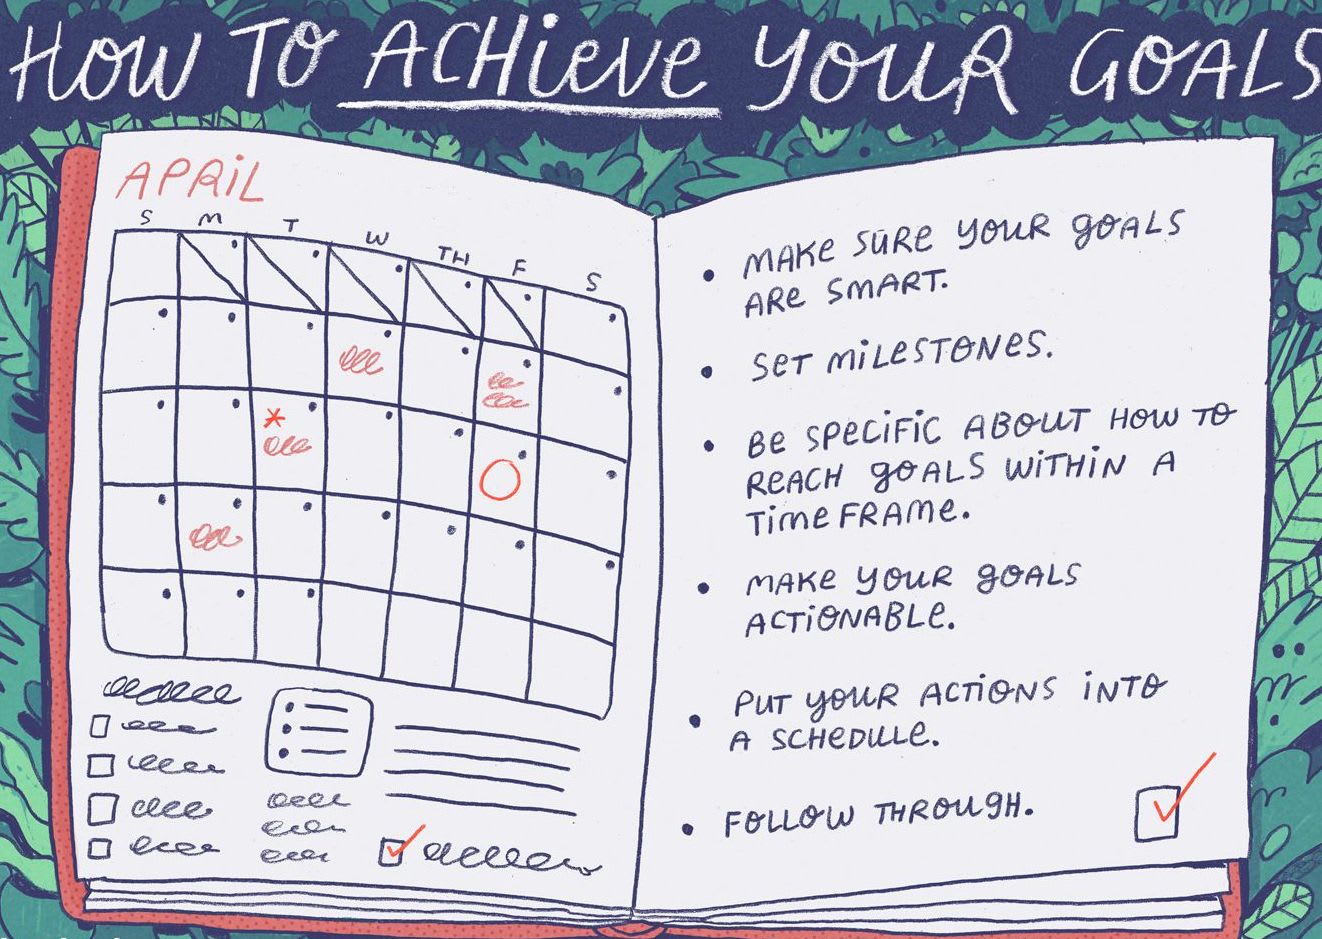 HOW TO ACHIEVE YOUR GOALS
APRIL
S M T W TH F S
• MAKE SURE YOUR GOALS
ARE SMART.
• SET MILESTONES.
• BE SPECIFIC ABOUT HOW TO
REACH GOALS WITHIN A
TIMEFRAME.
• MAKE YOUR GOALS
ACTIONABLE.
• PUT YOUR ACTIONS INTO
A SCHEDULE.
• FOLLOW THROUGH.